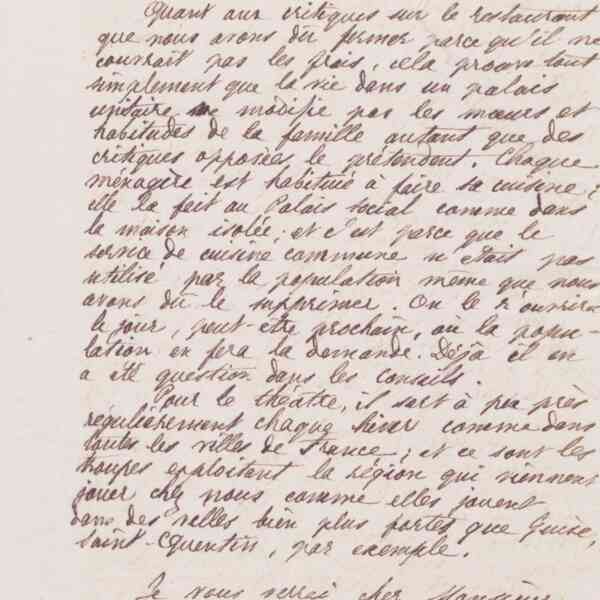 Quant aux critiques sur le restaurant
que nous avons dû fermer parce qu'il ne
couvrait pas les frais, cela prouve tout
simplement que la vie dans un palais
unitaire ne modifie pas les mœurs et
habitudes de la famille autant que des
critiques opposées le prétendent. Chaque
ménagère est habituée à faire sa cuisine;
elle la fait au Palais social comme dans
la maison isolée; et c'est parce que le
service de cuisine commune n'était pas
utilisé par la population même que nous
avons dû le supprimer. On le r'ouvrira
le jour, peut-être prochain, où la popu-
lation en fera la demande. Déjà il en
a été question dans les conseils.
Pour le théâtre, il sert à peu près
régulièrement chaque hiver comme dans
toutes les villes de France; et ce sont les
troupes exploitant la région qui viennent
jouer chez nous comme elles jouent
dans des villes bien plus fortes que Guise,
Saint-Quentin, par exemple.
Je vous verrai cher Monsieur